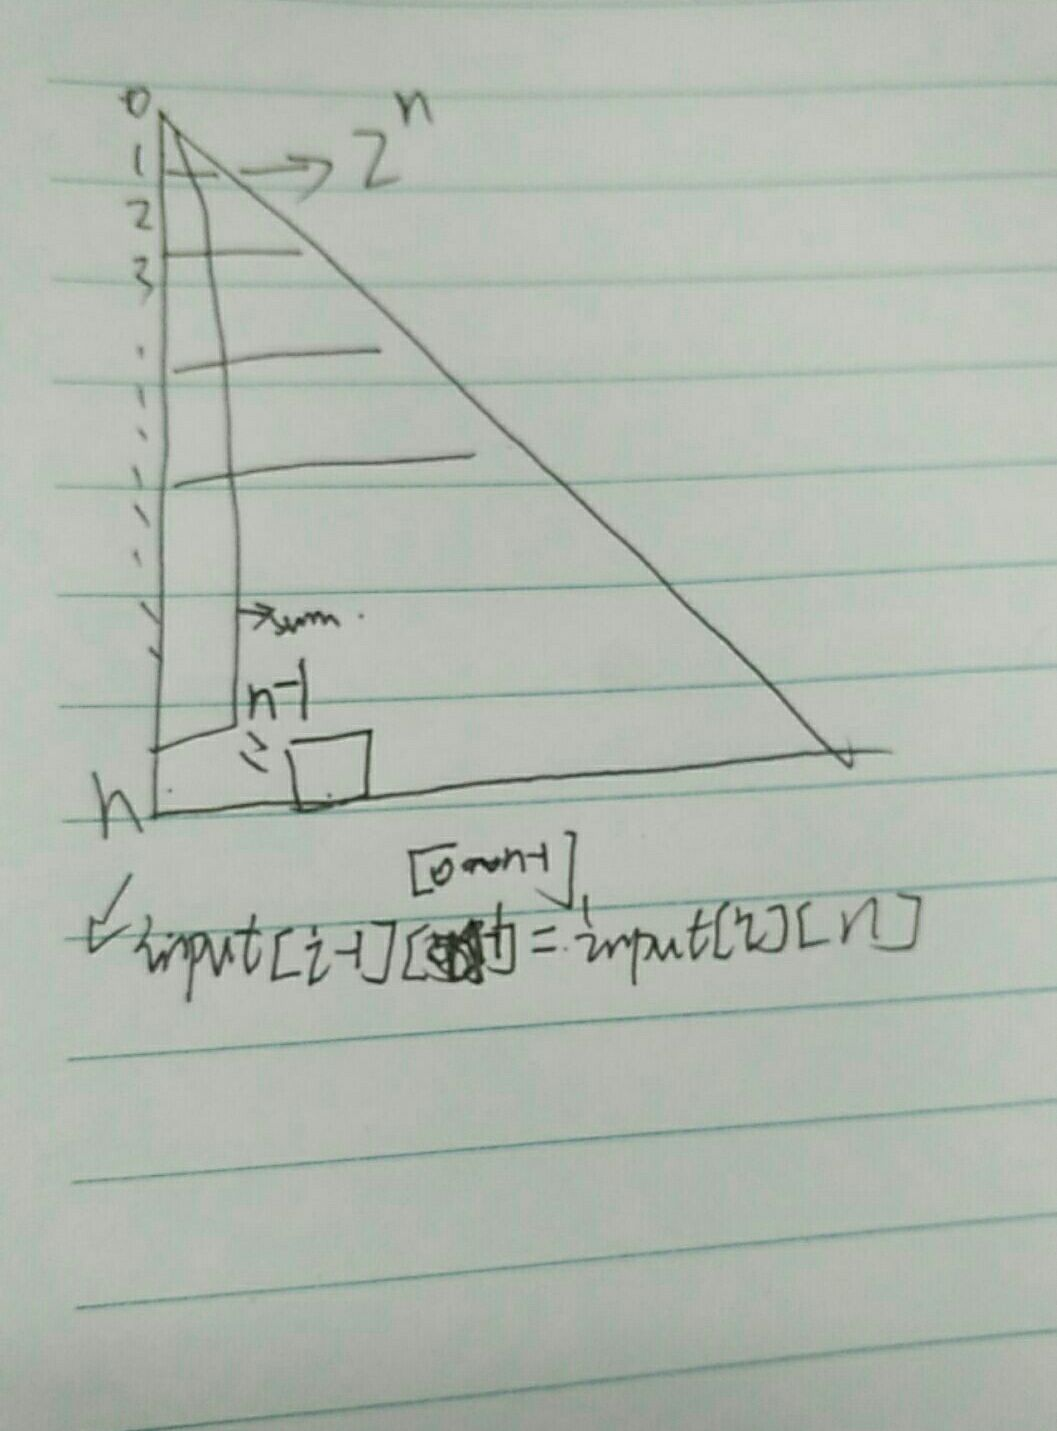 0
1 → 2^n
2
3
→ sum.
n-1
n
[0~n-1]
✓ input[i-1][] = input[i][n]